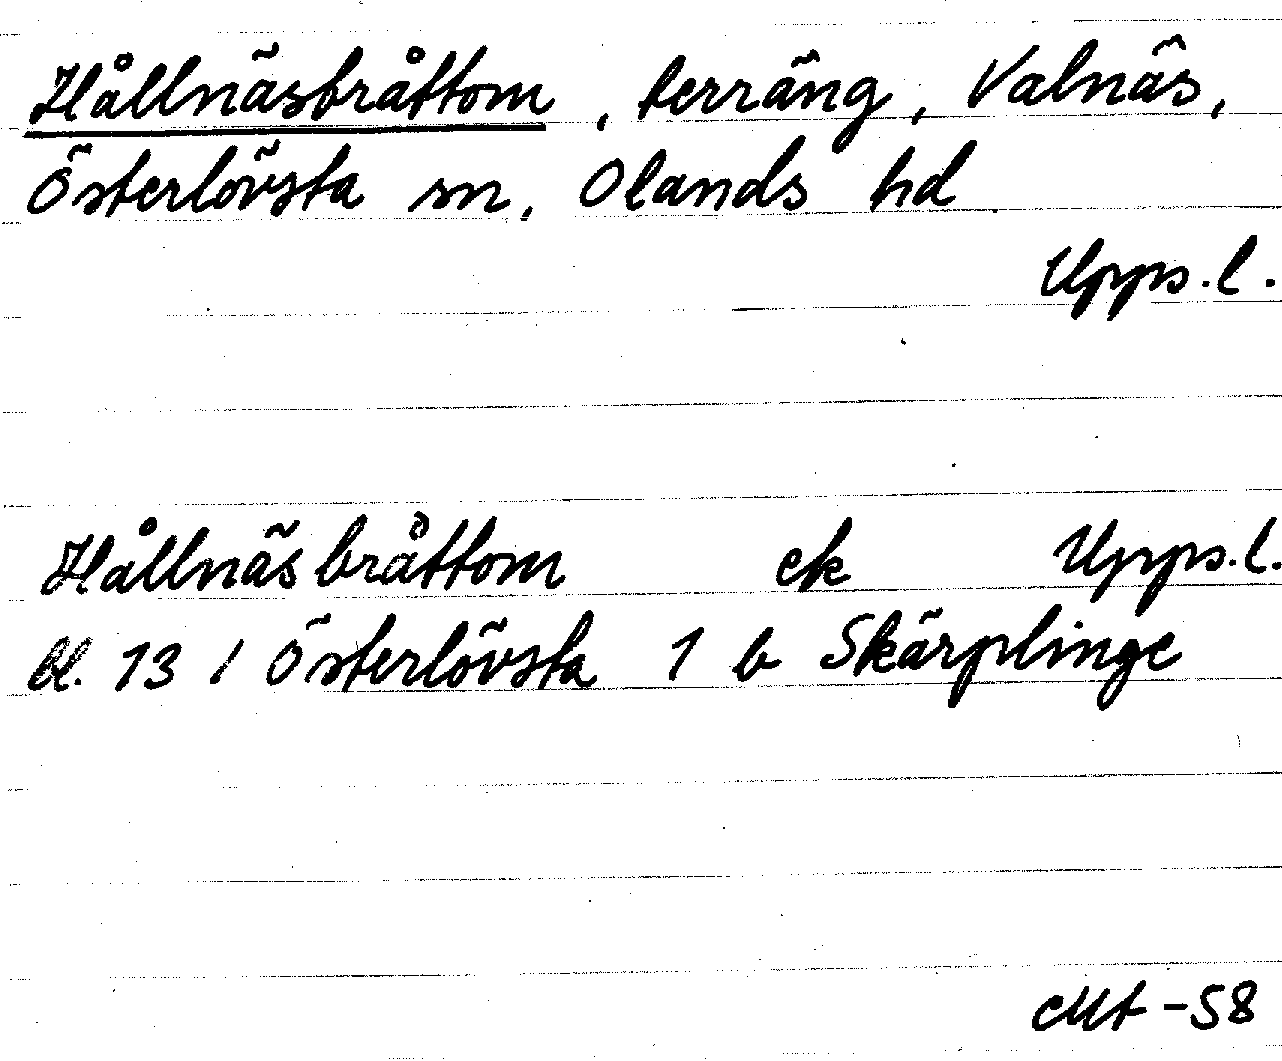 Hållnäsbråttom, terräng, Valnäs,
Österlövsta sn, Olands hd
Upps.l.
Hållnäsbråttom ek Upps.l.
bl. 13 / Österlövsta 1 b Skärplinge
-58